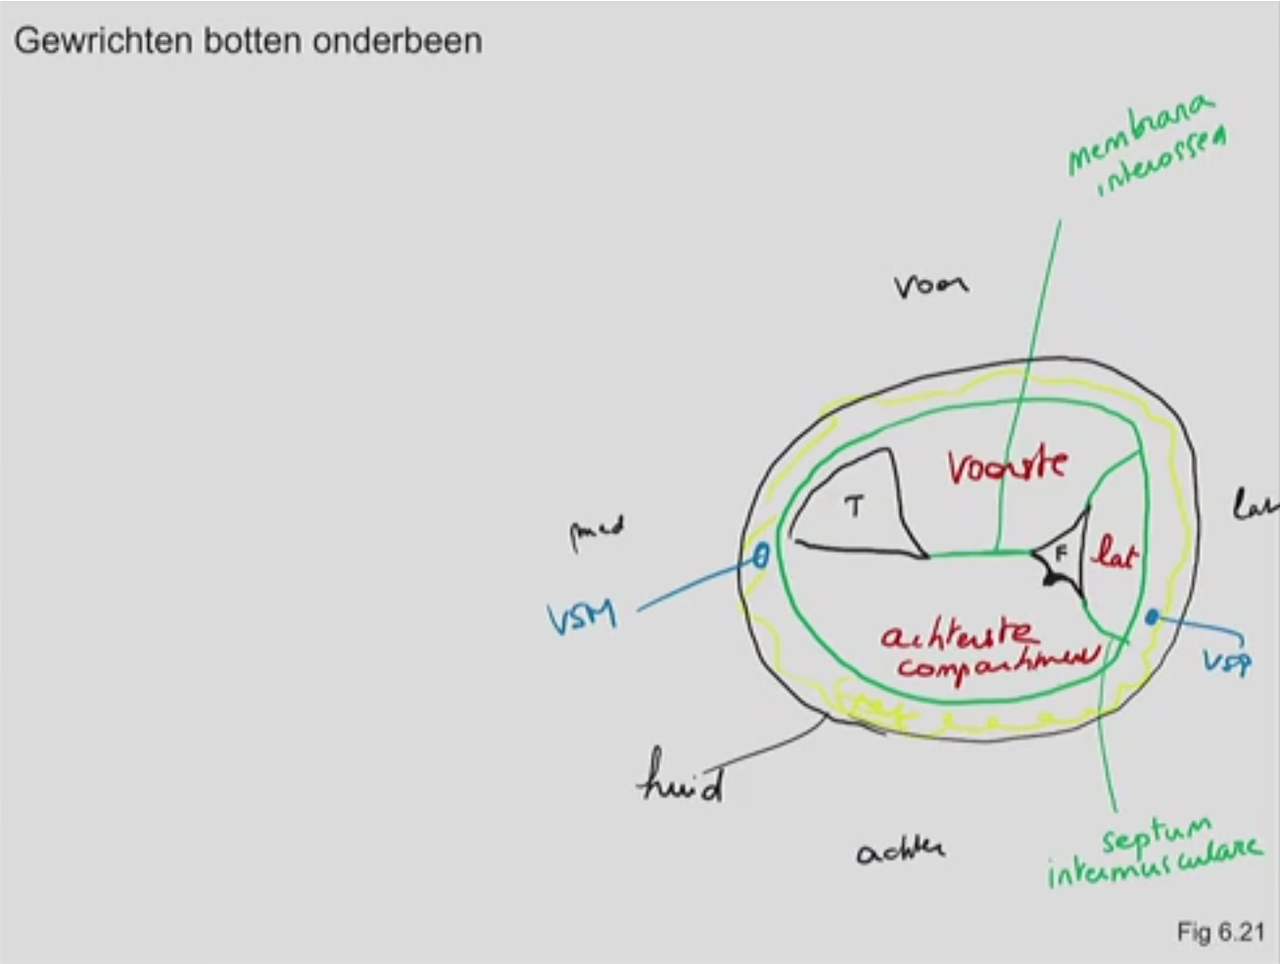 Gewrichten botten onderbeen
membrana
interossea
voor
voorste
T
med
F
lat
lat
VSM
achterste
compartiment
VSP
huid
achter
septum
intermusculare
Fig 6.21